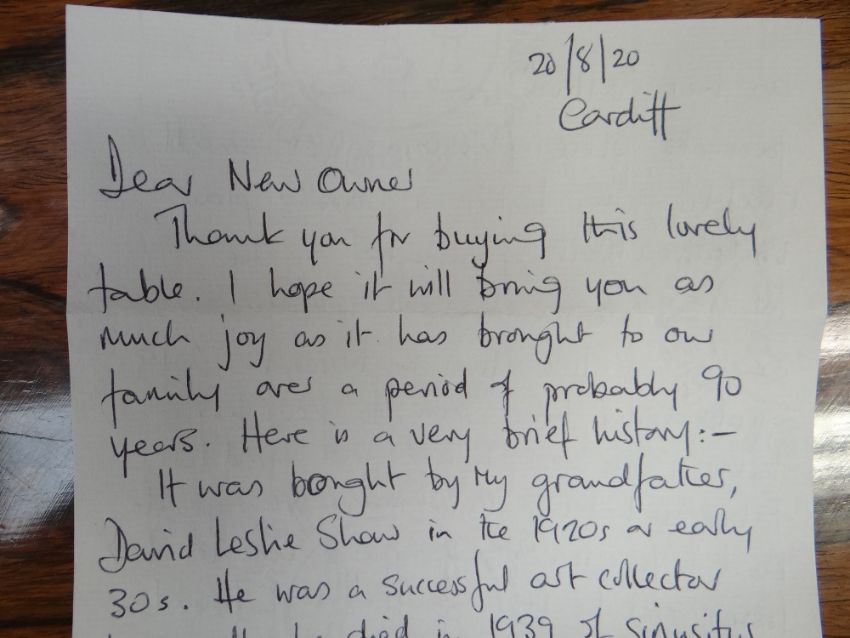 20/8/20
Cardiff
Dear New Owner
Thank you for buying this lovely
table. I hope it will bring you as
much joy as it has brought to our
family over a period of probably 90
years. Here is a very brief history:-
It was bought by my grandfather,
David Leslie Shaw in the 1920s or early
30s. He was a successful art collector
he died in 1939 of sinusitis